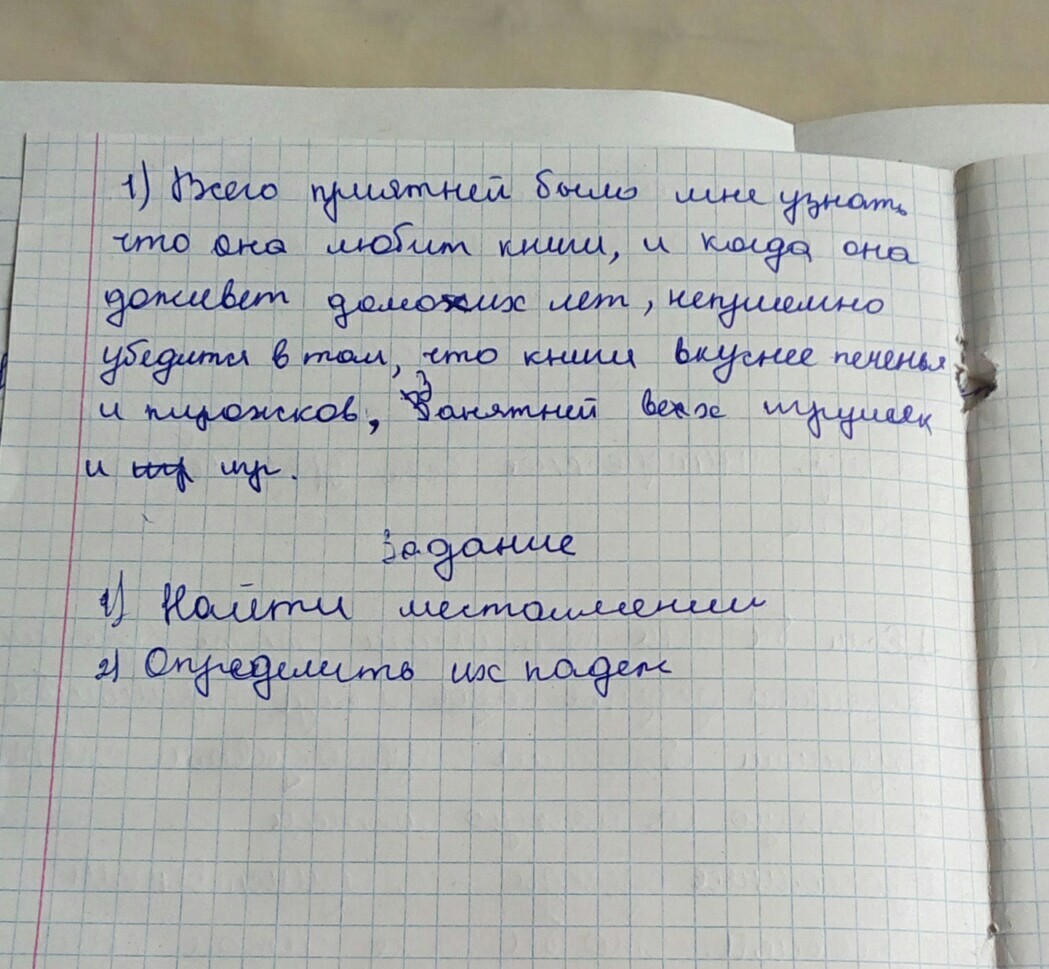 1) Всего приятней было мне узнать
что она любит книги, и когда она
доживет до моих лет, непременно
убедится в том, что книги вкуснее печенья
и пирожков, занятней всех игрушек
и игр.
Задание
1) Найти местоимении
2) Определить их падеж